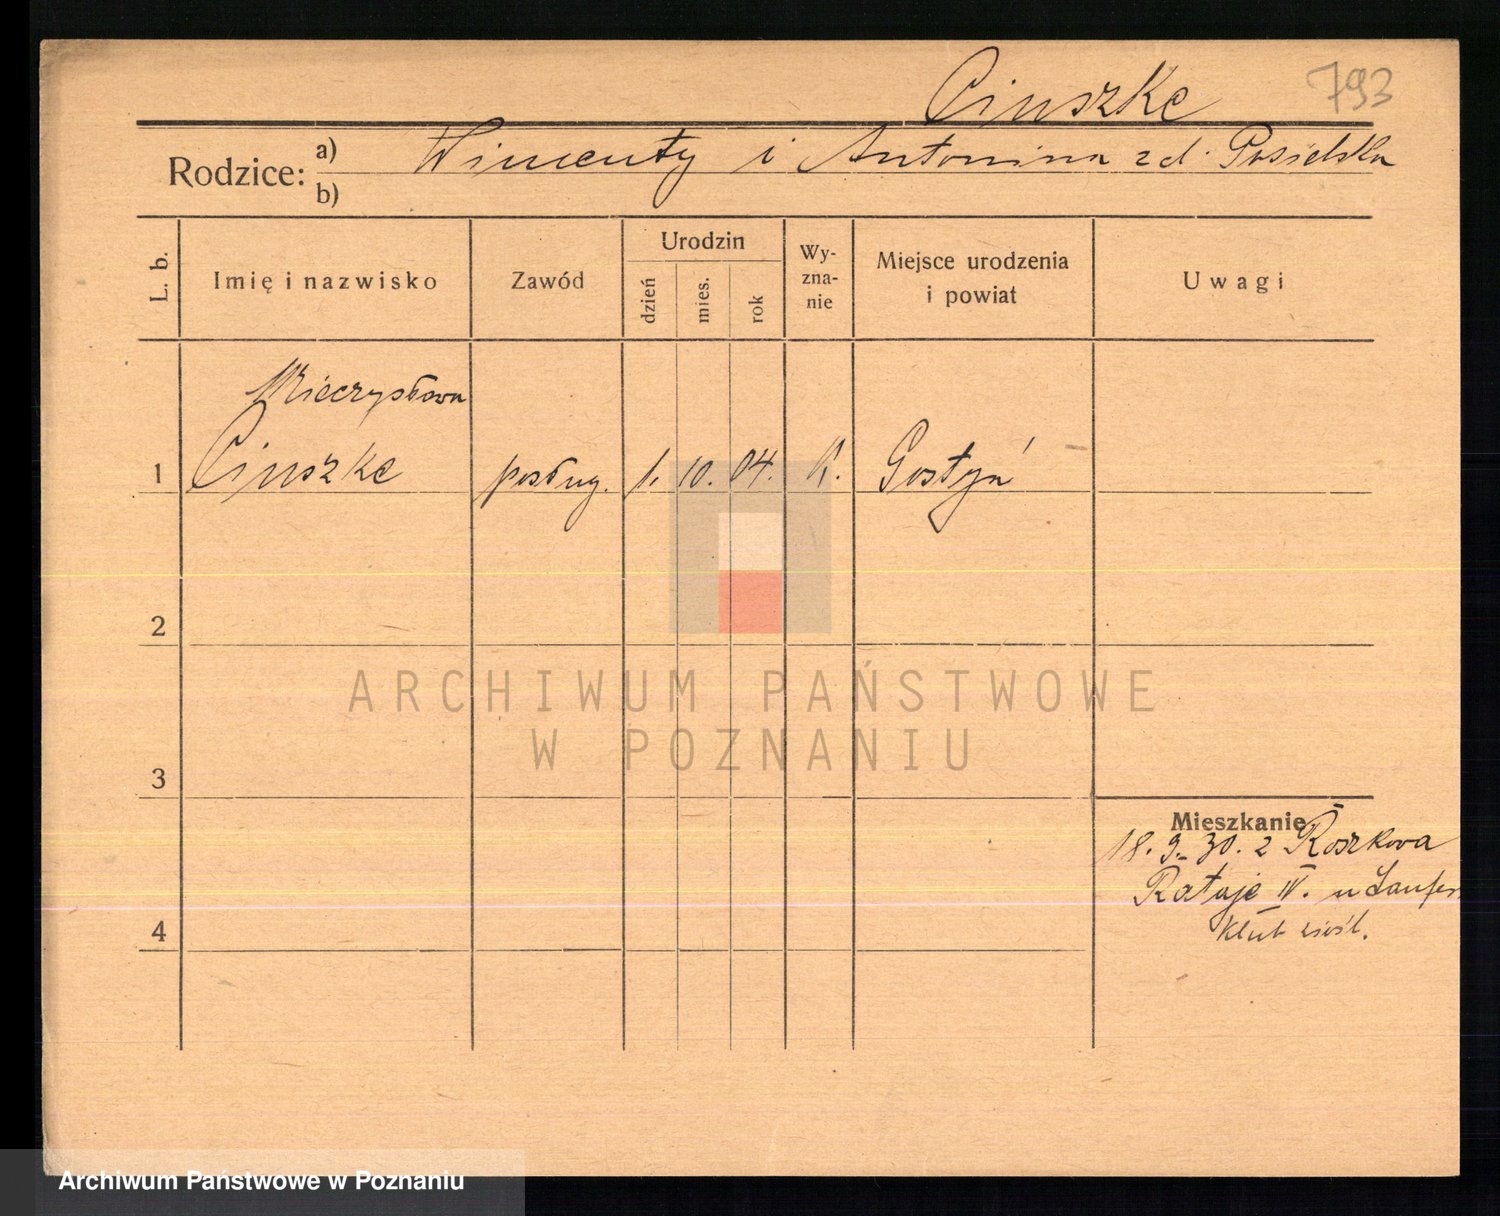 Ciuszke 793
Rodzice: a) Wincenty i Antonina z d. Posielska
b)
L. b. Imię i nazwisko Zawód Urodzin dzień mies. rok Wyznanie Miejsce urodzenia i powiat Uwagi
Mieczysława
1 Ciuszke posług. 1. 10. 04. k. Gostyń
2
3
4
Mieszkanie
18. 9. 30. z Roszkowa
Rataje IV. u
Klub wiośl.
ARCHIWUM PAŃSTWOWE
W POZNANIU
Archiwum Państwowe w Poznaniu